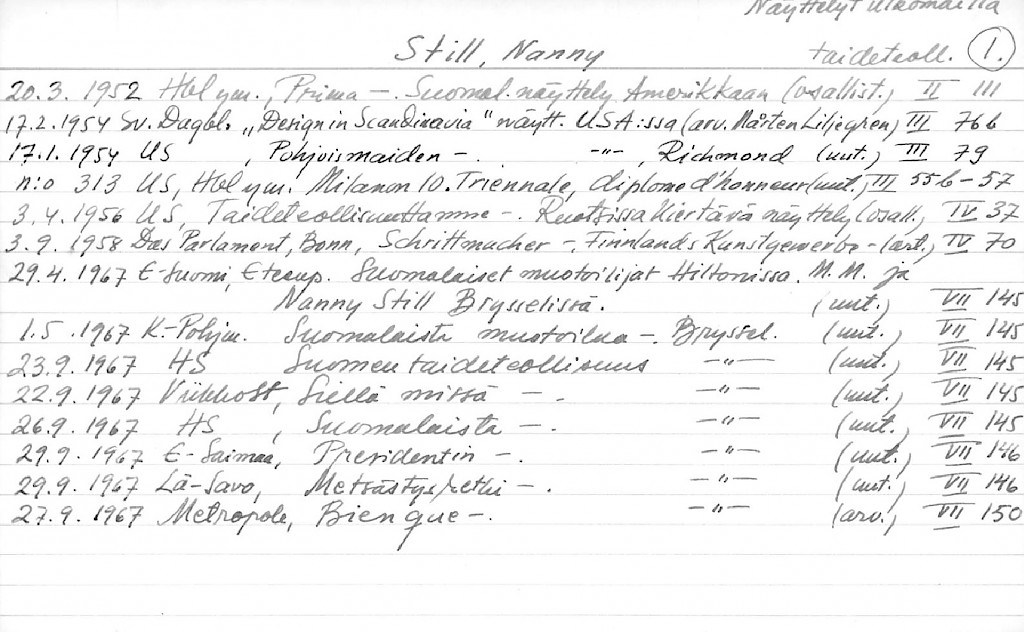 Näyttelyt ulkomailla
Still, Nanny taideteoll. 1.
20.3. 1952 Hbl ym., Prima —. Suomal. näyttely Amerikkaan (osallist.) II 111
17.2.1954 Sv. Dagbl. „Design in Scandinavia" näytt. USA:ssa (arv. Mårten Liljegren) III 76b
17.1. 1954 US , Pohjoismaiden —. —"— , Richmond (uut.) III 79
n:o 313 US, Hbl ym. Milanon 10. Triennale, diplome d'honneur (uut.) III 55b-57
3.4.1956 US, Taideteollisuuttamme —. Ruotsissa kiertävä näyttely (osall.) IV 37
3.9. 1958 Das Parlament, Bonn, Schrittmacher —, Finnlands Kunstgewerbe - (art.) IV 70
29.4. 1967 E-Suomi, Eteenp. Suomalaiset muotoilijat Hiltonissa. M.M. ja
Nanny Still Brysselissä. (uut.) VII 145
1.5. 1967 K-Pohjm. Suomalaista muotoilua —. Bryssel. (uut.) VII 145
23.9. 1967 HS Suomen taideteollisuus —"— (uut.) VII 145
22.9. 1967 Viikkost, Siellä missä —. —"— (uut.) VII 145
26.9. 1967 HS , Suomalaista —. —"— (uut.) VII 145
29.9. 1967 E-Saimaa, Presidentin —. —"— (uut.) VII 146
29.9. 1967 Lä-Savo, Metsästysretki —. —"— (uut.) VII 146
27.9. 1967 Metropole, Bien que —. —"— (arv.) VII 150